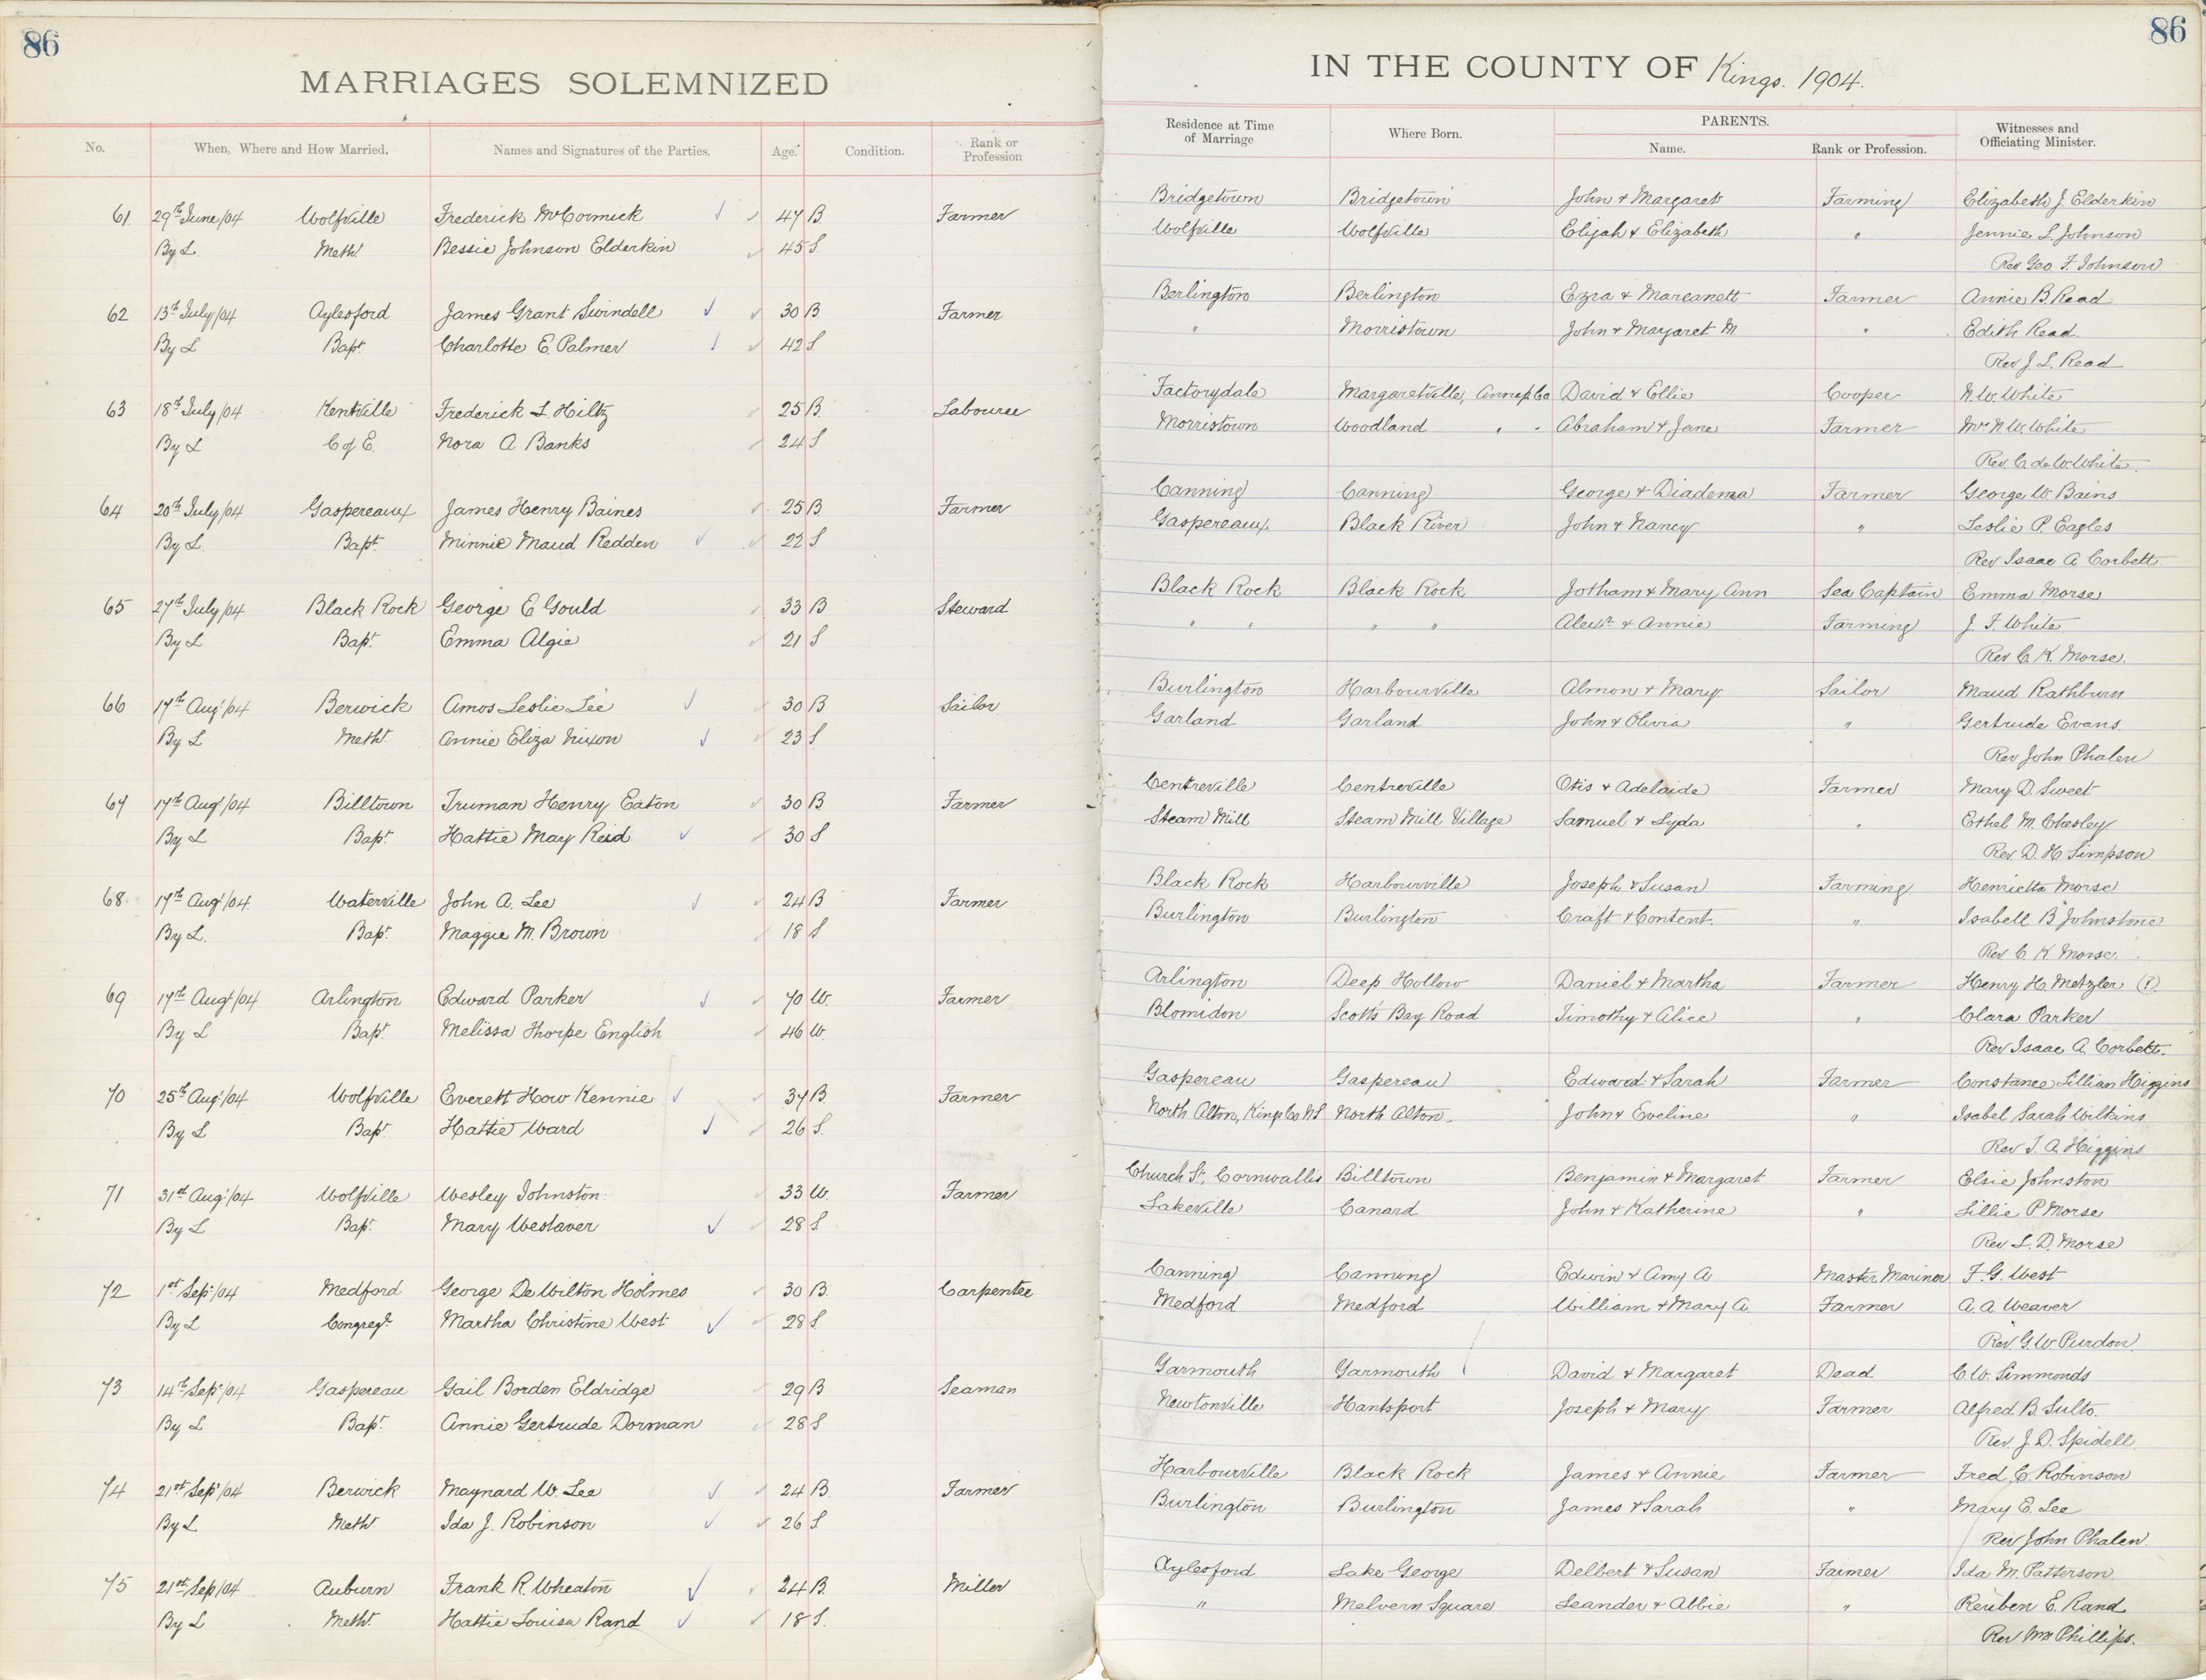 86
MARRIAGES SOLEMNIZED
No. When, Where and How Married. Names and Signatures of the Parties. Age. Condition. Rank or Profession
61 29th June/04 Wolfville Frederick McCormick 47 B. Farmer
By L. Meth. Bessie Johnson Elderkin 45 S.
62 13th July/04 Aylesford James Grant Swindell 30 B Farmer
By L Bapt. Charlotte E. Palmer 42 S.
63 18th July/04 Kentville Frederick L. Hiltz 25 B. Labourer
By L C of E. Nora A Banks 24 S
64 20th July/04 Gaspereaux James Henry Baines 25 B. Farmer
By L. Bapt. Minnie Maud Redden 22 S
65 27th July/04 Black Rock George E Gould 33 B Steward
By L Bapt. Emma Algie 21 S
66 17th Aug/04 Berwick Amos Leslie Lee 30 B Sailor
By L Metht. Annie Eliza Nixon 23 S.
67 17th Aug/04 Billtown Truman Henry Eaton 30 B. Farmer
By L Bapt. Hattie May Reid 30 S
68 17th Aug/04 Waterville John A. Lee 24 B Farmer
By L. Bapt. Maggie M. Brown 18 S
69 17th Aug/04 Arlington Edward Parker 70 W. Farmer
By L Bapt. Melissa Thorpe English 46 W.
70 25th Aug/04 Wolfville Everett How Kennie 37 B Farmer
By L Bapt. Hattie Ward 26 S.
71 31st Aug/04 Wolfville Wesley Johnston 33 W. Farmer
By L Bapt. Mary Westaver 28 S
72 1st Sep/04 Medford George De Wilton Holmes 30 B. Carpenter
By L Congregt. Martha Christine West 28 S.
73 14th Sep/04 Gaspereau Gail Borden Eldridge 29 B Seaman
By L Bapt. Annie Gertrude Dorman 28 S
74 21st Sep/04 Berwick Maynard W. Lee 24 B. Farmer
By L Metht. Ida J. Robinson 26 S
75 21st Sep/04 Auburn Frank R. Wheaton 24 B. Miller
By L Metht. Hattie Louisa Rand 18 S.
86
IN THE COUNTY OF Kings. 1904.
Residence at Time of Marriage Where Born. PARENTS. Name. Rank or Profession. Witnesses and Officiating Minister.
Bridgetown Bridgetown John & Margaret Farming Elizabeth J. Elderkin
Wolfville Wolfville Elijah & Elizabeth " Jennie L Johnson
Rev Geo. F. Johnson
Berlington Berlington Ezra & Marcanett Farmer Annie B. Read
" Morristown John & Margaret M " Edith Read.
Rev J. L. Read
Factorydale Margaretville, Annap Co David & Ellie Cooper N. W. White
Morristown Woodland " " Abraham & Jane Farmer Mrs N W. White
Rev. C. de W. White.
Canning Canning George & Diadema Farmer George W. Bains
Gaspereaux Black River John & Nancy " Leslie P. Eagles
Rev Isaac A Corbett
Black Rock Black Rock Jotham & Mary Ann Sea Captain Emma Morse
" " " " Alexr & Annie Farming J. F. White
Rev C. K. Morse.
Burlington Harbourville Almon & Mary Sailor Maud Rathburn
Garland Garland John & Olivia " Gertrude Evans.
Rev John Phalen
Centreville Centreville Otis & Adelaide Farmer Mary D. Sweet
Steam Mill Steam Mill Village Samuel & Lyda " Ethel M. Chesley
Rev D. H Simpson
Black Rock Harbourville Joseph & Susan Farming Henrietta Morse
Burlington Burlington Craft & Content. " Isabell B Johnstone
Rev C K Morse.
Arlington Deep Hollow Daniel & Martha Farmer Henry H. Metzler (?)
Blomidon Scott's Bay Road Timothy & Alice " Clara Parker
Rev Isaac A. Corbett.
Gaspereau Gaspereau Edward & Sarah Farmer Constance Lillian Higgins
North Alton, Kings Co NS North Alton. John & Eveline " Isabel Sarah Wilkins
Rev T. A. Higgins
Church St., Cornwallis Billtown Benjamin & Margaret Farmer Elsie Johnston
Lakeville Canard John & Katherine " Lillie P. Morse
Rev L. D. Morse
Canning Canning Edwin & Amy A Master Mariner F. G. West
Medford Medford William & Mary A. Farmer A. A. Weaver
Rev. G. W Purdon.
Yarmouth Yarmouth David & Margaret Dead C. W. Simmonds
Newtonville Hantsport Joseph & Mary Farmer Alfred B. Sults.
Rev. J. D. Spidell
Harbourville Black Rock James & Annie Farmer Fred C. Robinson
Burlington Burlington James & Sarah " Mary E. Lee
Rev John Phalen.
Aylesford Lake George Delbert & Susan Farmer Ida M. Patterson
" Melvern Square Leander & Abbie " Reuben E. Rand
Rev Wm Phillips.